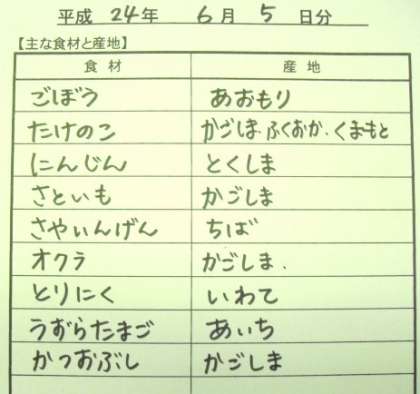 平成 24年 6月 5日分
【主な食材と産地】
食材 産地
ごぼう あおもり
たけのこ かごしま.ふくおか.くまもと
にんじん とくしま
さといも かごしま
さやいんげん ちば
オクラ かごしま.
とりにく いわて
うずらたまご あいち
かつおぶし かごしま